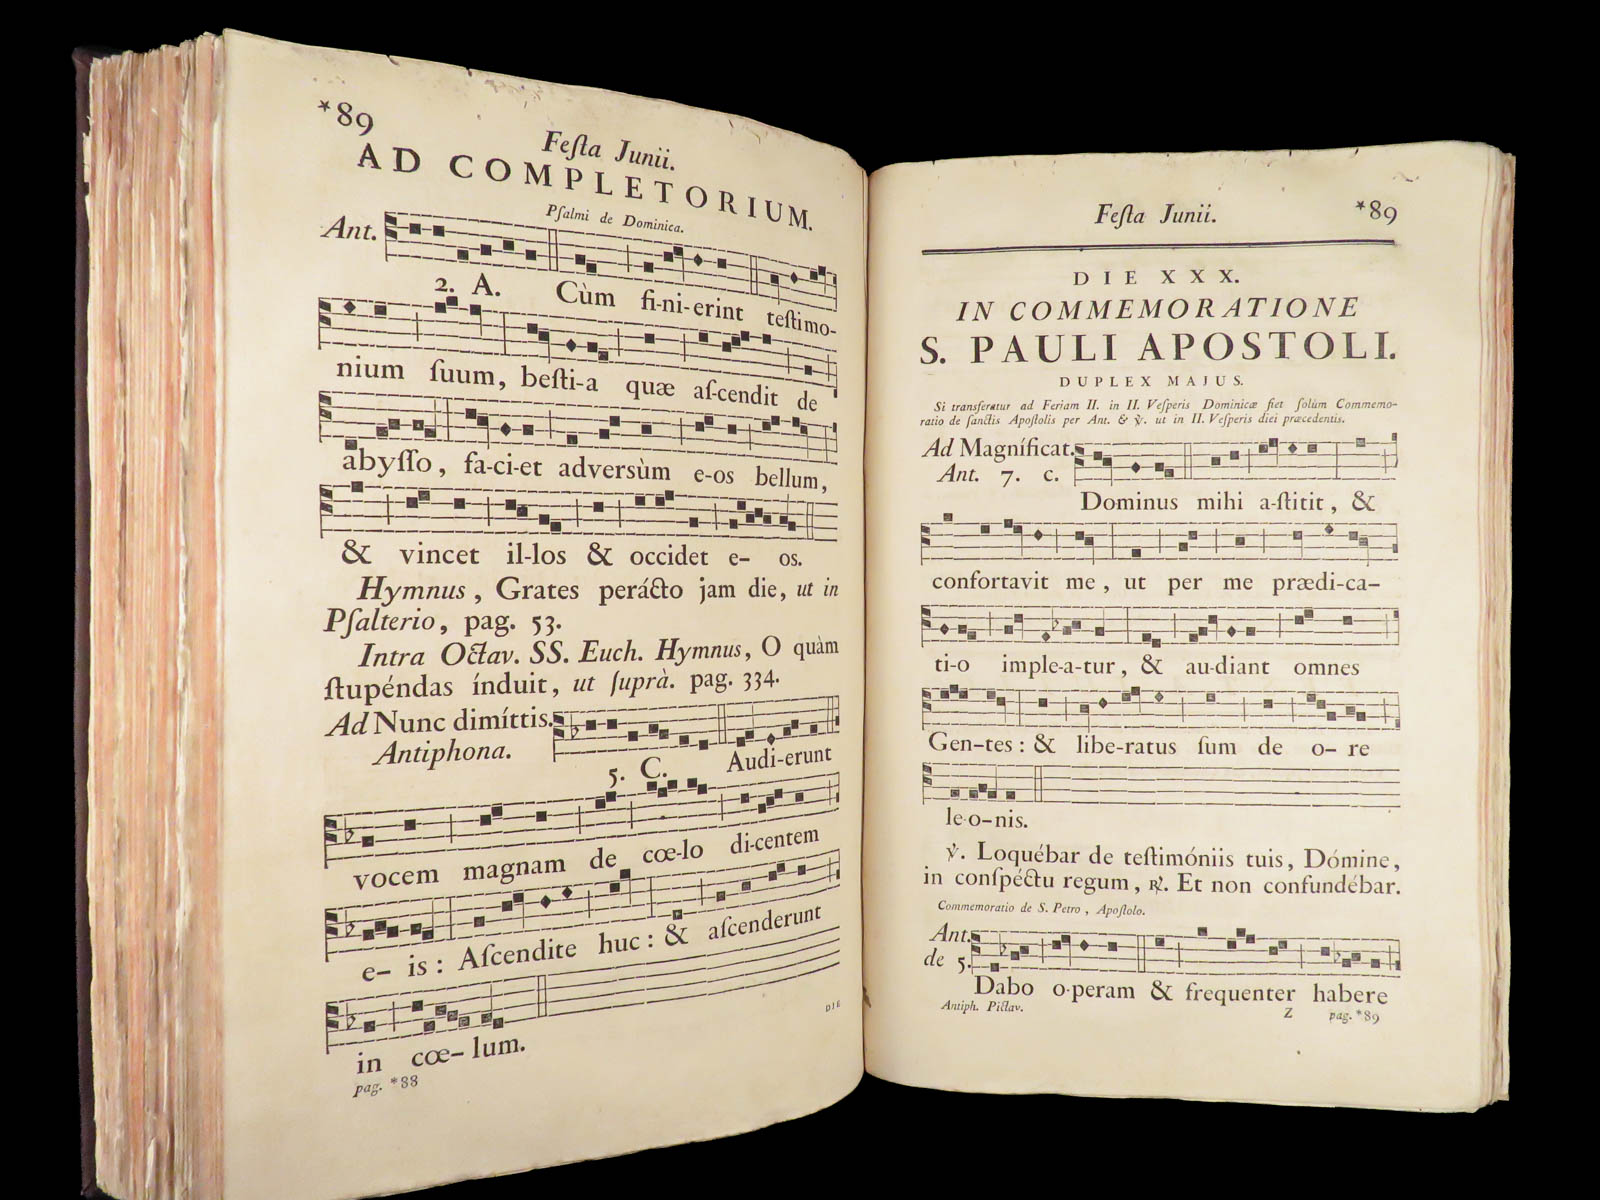 *89
Feſta Junii.
AD COMPLETORIUM.
Pſalmi de Dominica.
Ant.
2. A. Cùm fi-ni-erint teſtimo-
nium ſuum, beſti-a quæ aſ-cendit de
abyſſo, fa-ci-et adversùm e-os bellum,
& vincet il-los & occidet e- os.
Hymnus, Grates perácto jam die, ut in
Pſalterio, pag. 53.
Intra Octav. SS. Euch. Hymnus, O quàm
ſtupéndas índuit, ut ſuprà. pag. 334.
Ad Nunc dimíttis.
Antiphona.
5. C. Audi-erunt
vocem magnam de cœ-lo di-centem
e- is: Aſcendite huc: & aſcenderunt
in cœ- lum.
DIE
pag. *88
Feſta Junii. *89
DIE XXX.
IN COMMEMORATIONE
S. PAULI APOSTOLI.
DUPLEX MAJUS.
Si transferatur ad Feriam II. in II. Veſperis Dominicæ fiet ſolùm Commemo-
ratio de ſanctis Apoſtolis per Ant. & ℣. ut in II. Veſperis diei præcedentis.
Ad Magníficat.
Ant. 7. c.
Dominus mihi a-ſtitit, &
confortavit me, ut per me prædi-ca-
ti-o imple-a-tur, & au-diant omnes
Gen-tes: & libe-ratus ſum de o- re
le-o-nis.
℣. Loquébar de teſtimóniis tuis, Dómine,
in conſpéctu regum, ℟. Et non confundébar.
Commemoratio de S. Petro, Apoſtolo.
Ant.
de 5.
Dabo o-peram & frequenter habere
Antiph. Pictav. Z pag. *89